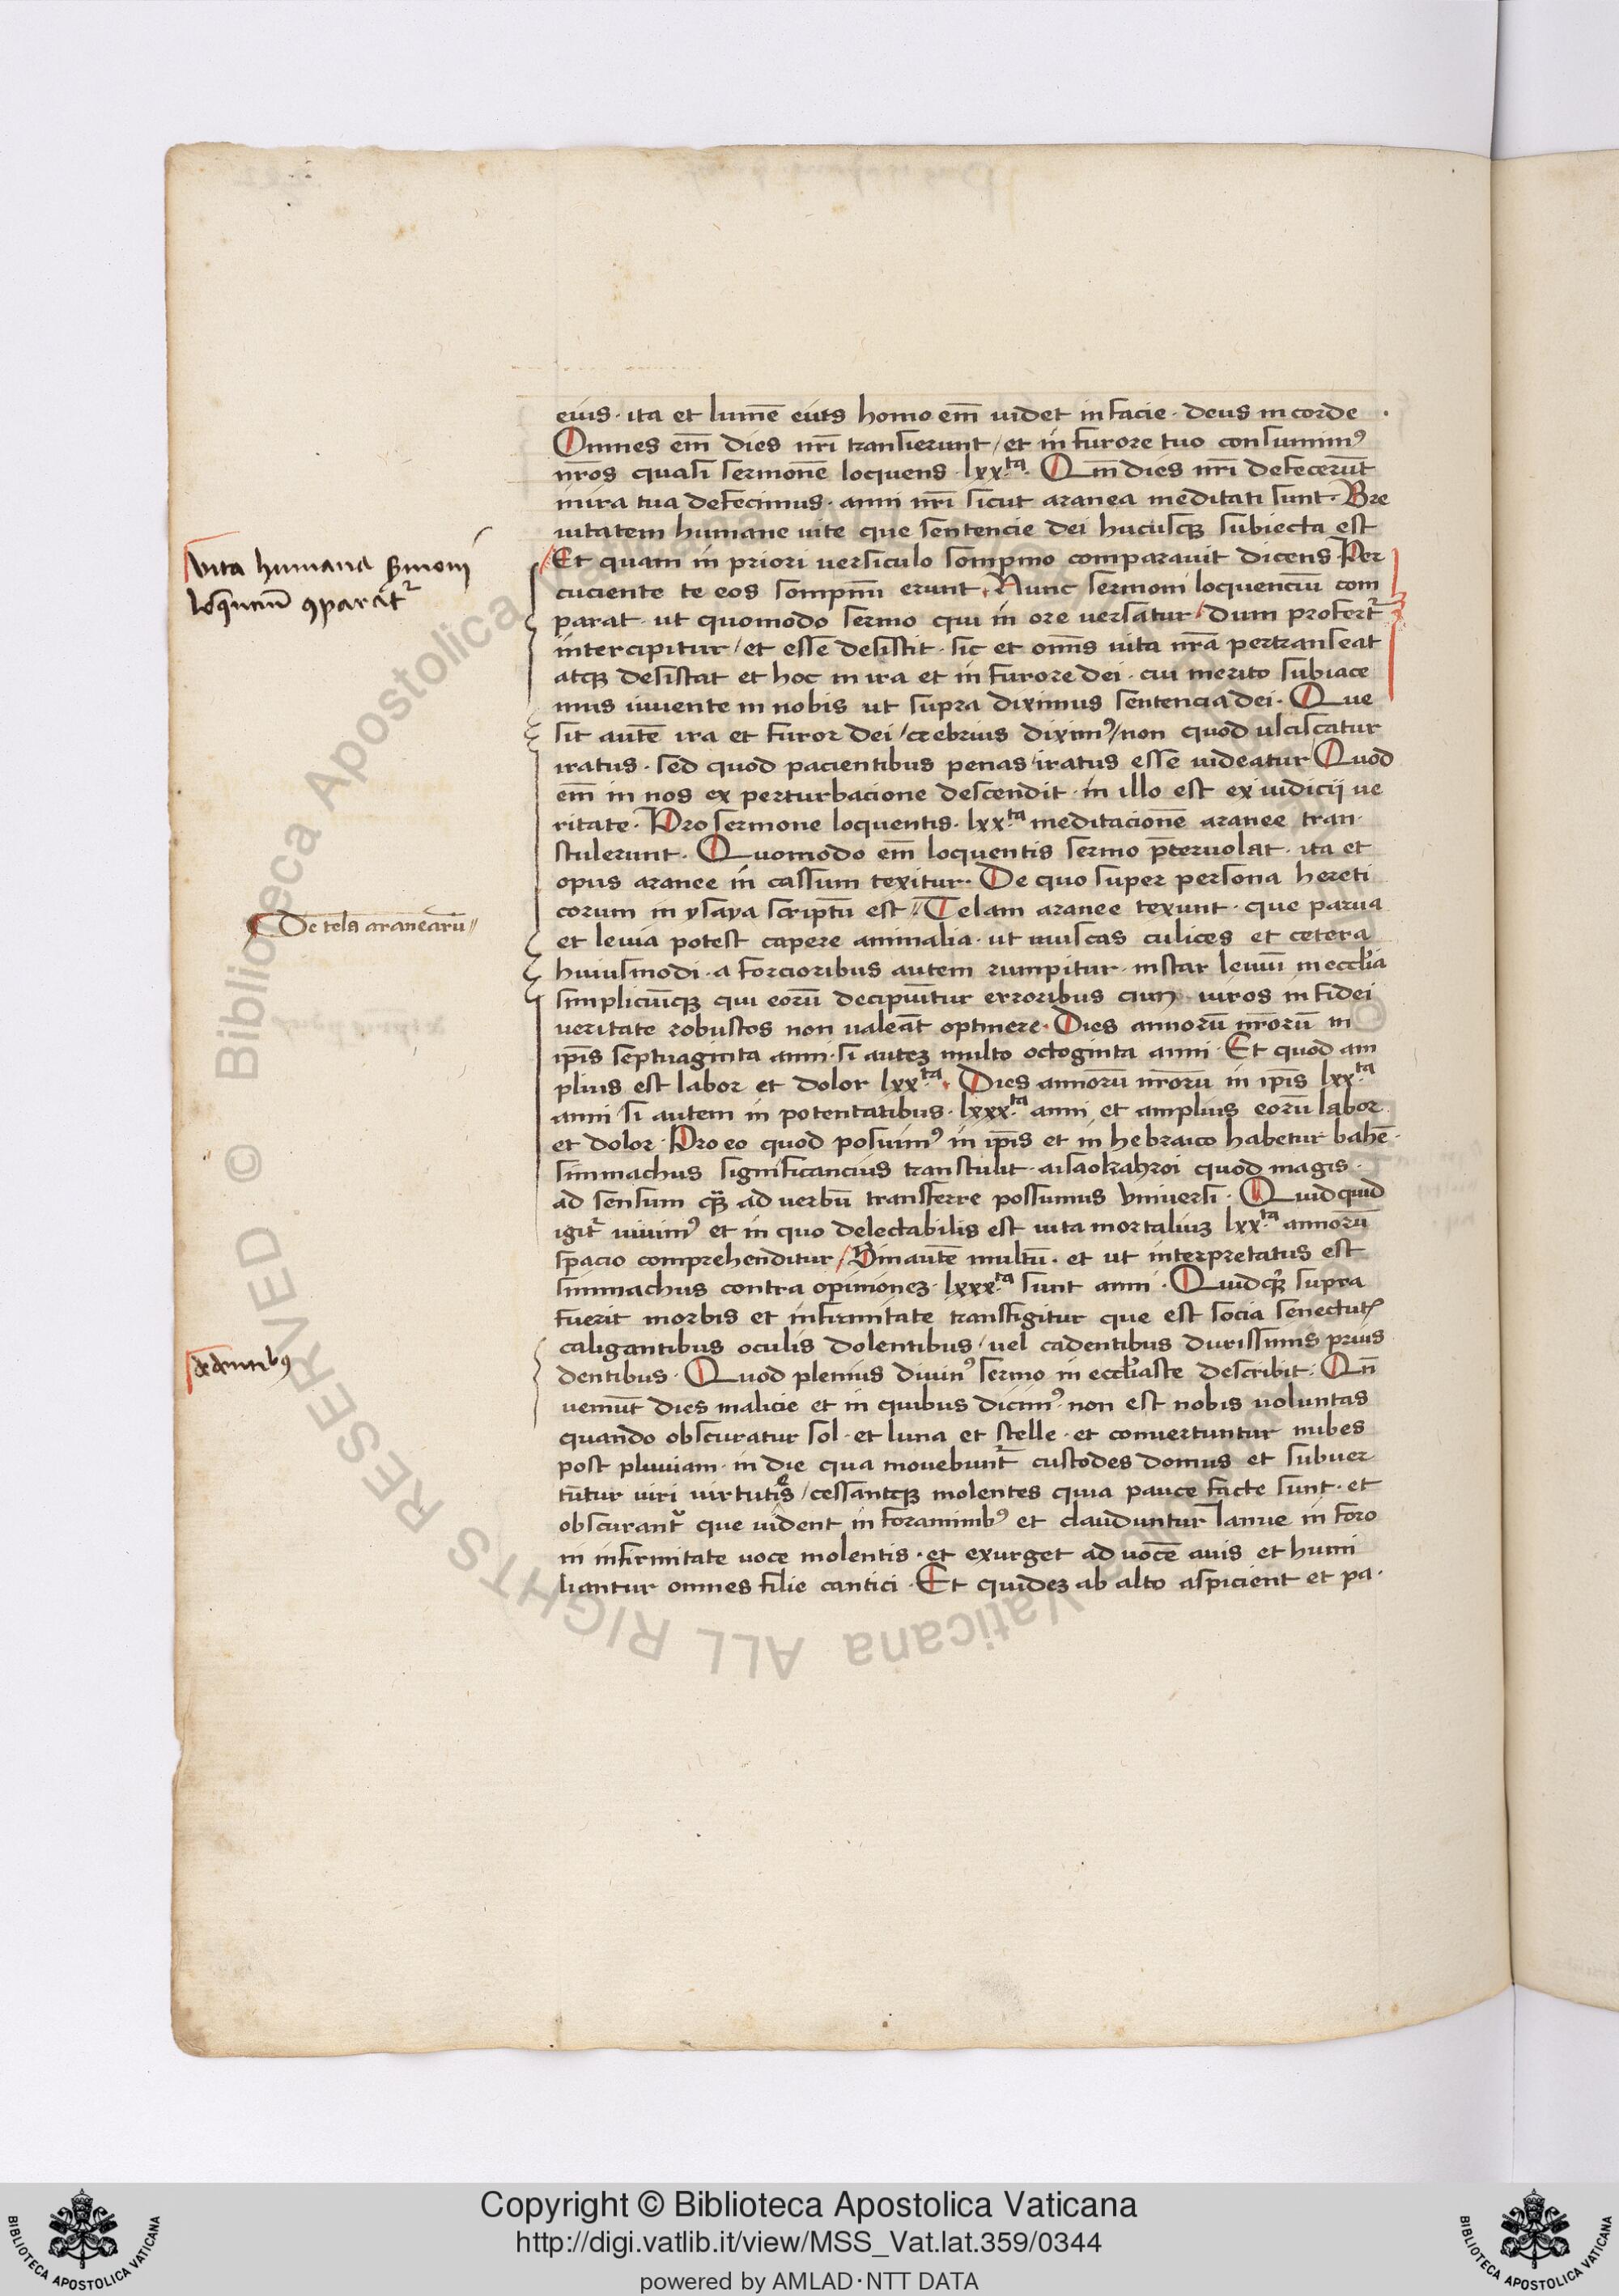 eius · ita et lumē eius homo em̄ uidet in facie · deus in corde ·
Omnes em̄ dies nr̄i transierunt / et in furore tuo consumimꝰ
nr̄os quasi sermonē loquens · lxx.ta · Qm̄ dies nr̄i defecerūt
in ira tua defecimus · anni nr̄i sicut aranea meditati sunt · Bre
uitatem humane uite que sentencie dei hucusqꝫ subiecta est
Et quam in priori uersiculo sompmo comparauit dicens · Per
cuciente te eos sompnū erunt · Nunc sermoni loquenciū com
parat · ut quomodo sermo qui in ore uersatur / dum profert᷑
intercipitur / et esse desistit · sic et omīs uita nr̄a pertranseat
atqꝫ desistat et hoc in ira et in furore dei · cui merito subiace
mus iuuente in nobis ut supra diximus sentencia dei · Que
sit autē ira et furor dei / crebrius diximꝰ / non quod ulciscatur
iratus · sed quod pacientibus penas / iratus esse uideatur / Quod
em̄ in nos ex perturbacione descendit · in illo est ex iudicij ue
ritate · Pro sermone loquentis · lxx.ta meditacionē aranee tran·
stulerunt · Quomodo em̄ loquentis sermo p̄teruolat · ita et
opus aranee in cassum texitur · De quo super persona hereti
corum in ysaya scriptū est // Telam aranee texunt · que parua
et leuia potest capere animalia · ut muscas culices et cetera
huiusmodi · a forcioribus autem rumpitur · instar leuiū in eccl̄ia
simpliciūqꝫ qui eorū decipiūtur erroribus cum uiros in fidei
ueritate robustos non ualeāt optinere · Dies annorū nr̄orū in
ip̄is septuaginta anni · si auteꝫ multo octoginta anni · Et quod am
plius est labor et dolor lxx.ta · Dies annorū nr̄orū in ip̄is lxx.ta
anni / si autem in potentatibus · lxxx.ta anni et amplius eorū labor
et dolor · Pro eo quod posuimꝰ in ip̄is et in hebraico habetur bahē ·
simmachus significancius transtulit · aisaokahroi quod magis ·
ad sensum qꝫ̄ ad uerbū transferre possumus vniuersi · Quidquid
igit᷑ uiuimꝰ et in quo delectabilis est uita mortaliuꝫ lxx.ta annorū
spacio comprehenditur / Sin autē multū · et ut interpretatus est
simmachus contra opinioneꝫ · lxxx.ta sunt anni · Quidqꝫ supra
fuerit morbis et infirmitate transfigitur que est socia senectutꝭ
caligantibus oculis dolentibus / uel cadentibus durissimis prius
dentibus · Quod plenius diuinꝰ sermo in eccl̄iaste describit · Qn̄
ueniūt dies malicie et in quibus dicimꝰ · non est nobis uoluntas
quando obscuratur sol · et luna et stelle · et conuertuntur nubes
post pluuiam · in die qua mouebunt᷑ custodes domus et subuer
tūtur uiri uirtutis / cessantqꝫ molentes quia pauce facte sunt · et
obscurant᷑ que uident in foraminibꝰ et clauduntur Ianue in foro
in infirmitate uoce molentis · et exurget ad uocē auis et humi
liantur omnes filie cantici · Et quideꝫ ab alto aspicient et pa·
vita humana s̄moni
loq̄nciū ꝯparat᷑
De tela aranearū //
de dentibꝰ
© Biblioteca Apostolica Vaticana ALL RIGHTS RESERVED
Copyright © Biblioteca Apostolica Vaticana
http://digi.vatlib.it/view/MSS_Vat.lat.359/0344
powered by AMLAD·NTT DATA
BIBLIOTECA APOSTOLICA VATICANA
BIBLIOTECA APOSTOLICA VATICANA